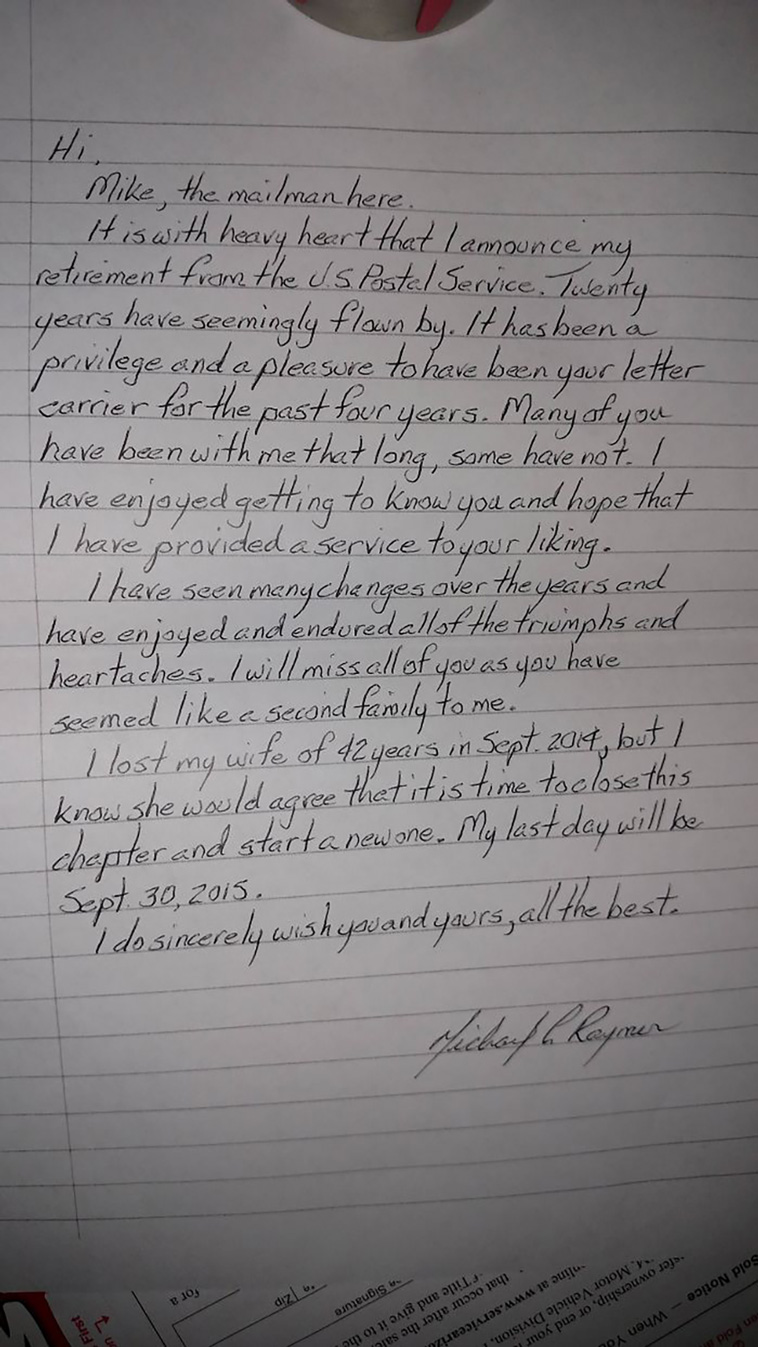 Hi,
Mike, the mailman here.
It is with heavy heart that I announce my
retirement from the U.S. Postal Service. Twenty
years have seemingly flown by. It has been a
privilege and a pleasure to have been your letter
carrier for the past four years. Many of you
have been with me that long, some have not. I
have enjoyed getting to know you and hope that
I have provided a service to your liking.
I have seen many changes over the years and
have enjoyed and endured all of the triumphs and
heartaches. I will miss all of you as you have
seemed like a second family to me.
I lost my wife of 42 years in Sept. 2014, but I
know she would agree that it is time to close this
chapter and start a new one. My last day will be
Sept. 30, 2015.
I do sincerely wish you and yours, all the best.
Michael Raymer
Sold Notice — When
Motor Vehicle Division
online at www.servicearizo
that occur after the sale
Title and give it to the
Signature
Zip
for a
First